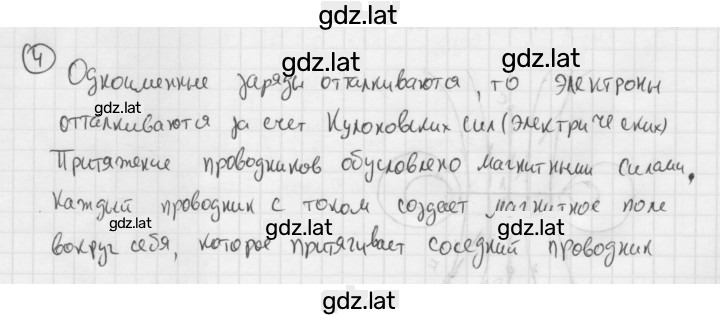 gdz.lat
4
gdz.lat gdz.lat
Одноименные заряды отталкиваются, то электроны
gdz.lat
отталкиваются за счет Кулоновских сил (электрических)
Притяжение проводников обусловлено магнитными силами.
Каждый проводник с током создает магнитное поле
gdz.lat gdz.lat gdz.lat
вокруг себя, которое притягивает соседний проводник
gdz.lat